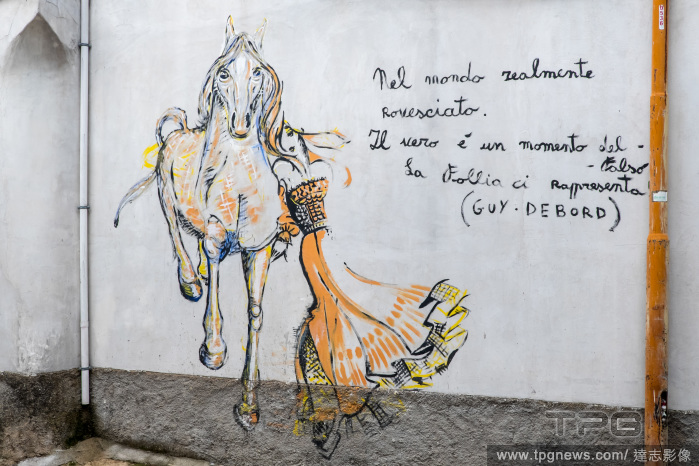 Nel mondo realmente
rovesciato.
Il vero é un momento del-
-Falso
La Follia ci rappresenta
(GUY.DEBORD)
TPG
www.tpgnews.com/ 達志影像